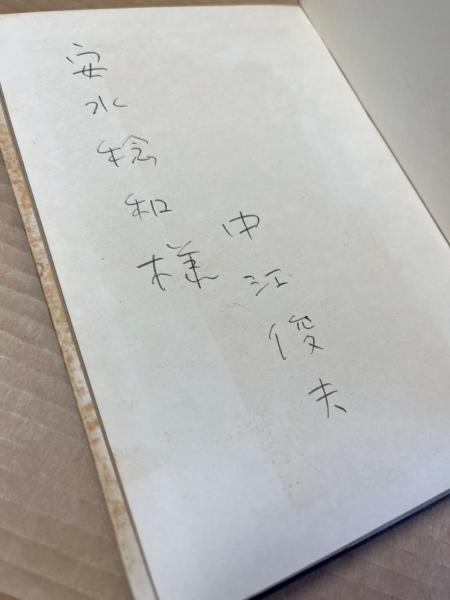 安水稔和様
中江俊夫